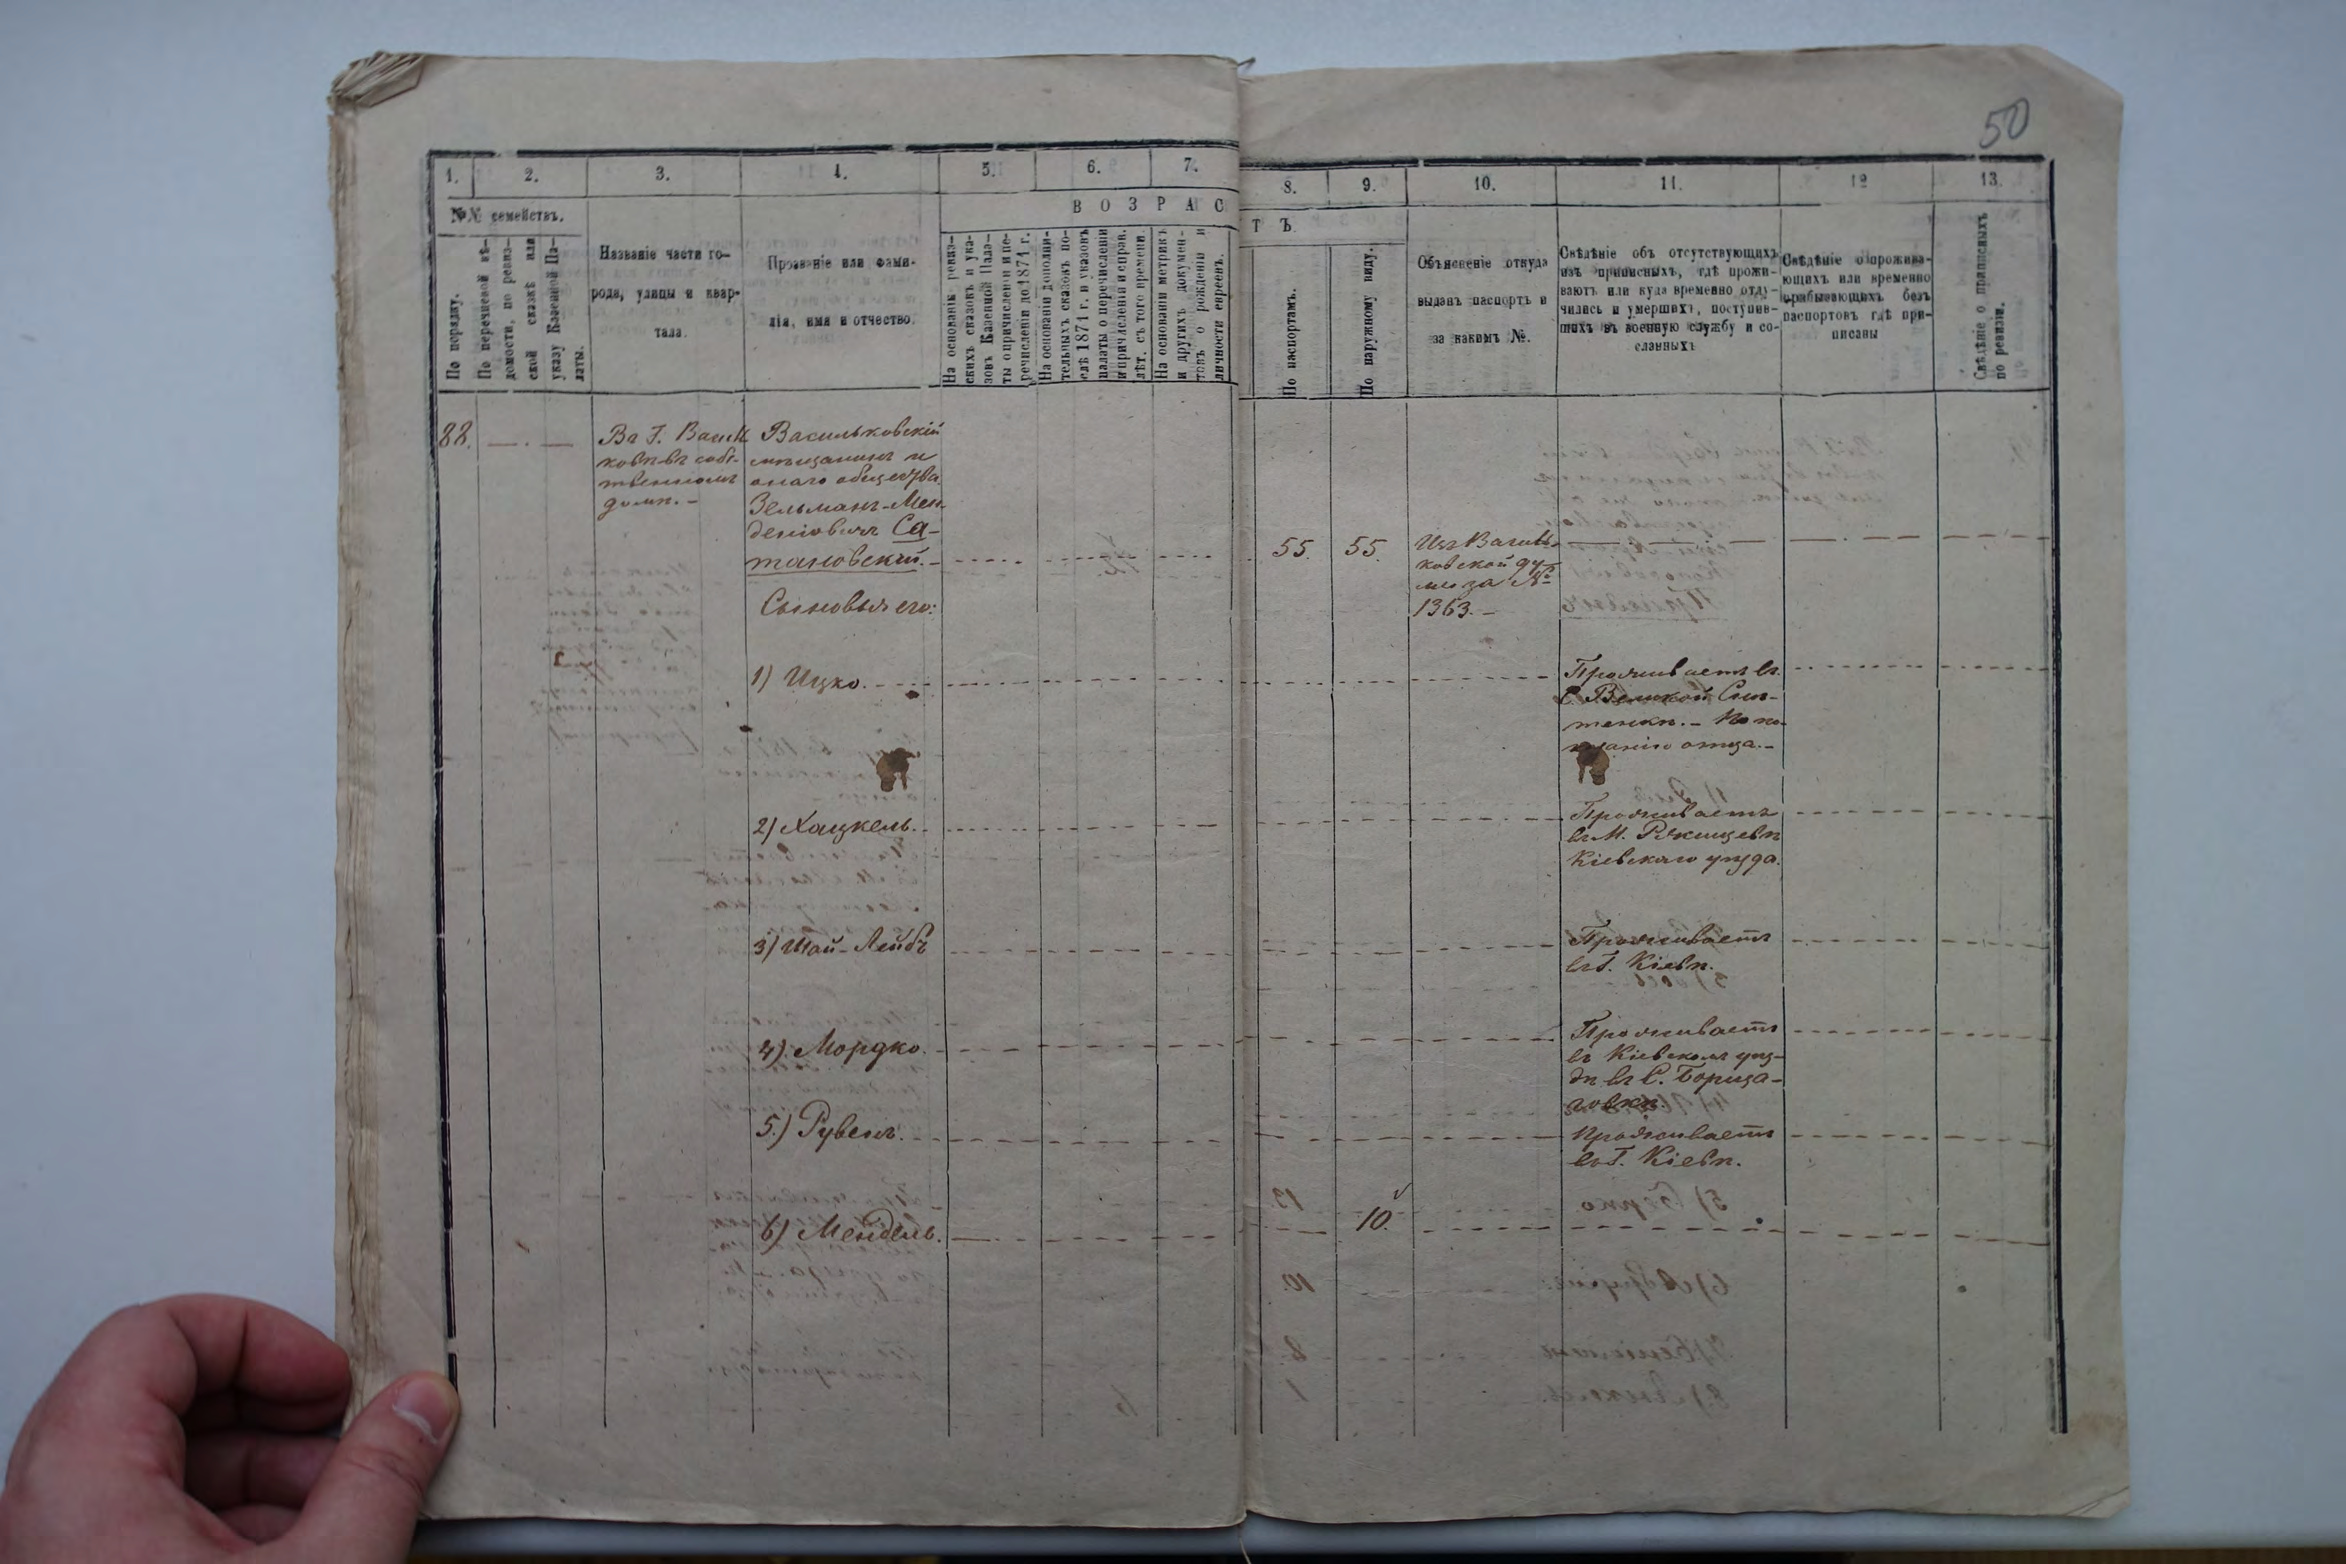 50
1. 2. 3. 4. 5. 6. 7. 8. 9. 10. 11. 12 13.
№№ семействъ.
ВОЗРАС
ТЪ.
По порядку.
По перечневой вѣ-
домости, по ревиз-
ской сказкѣ или
указу Казенной Па-
латы.
Названіе части го-
рода, улицы и квар-
тала.
Прозваніе или фами-
лія, имя и отчество.
На основаніи ревиз-
скихъ сказокъ и ука-
зовъ Казенной Пала-
ты о причисленіи и пе-
речисленіи до 1874 г.
На основаніи дополни-
тельныхъ сказокъ по-
слѣ 1874 г. и указовъ
палаты о перечисленіи
и причисленіи и справ.
лѣт. съ того времени.
На основаніи метрикъ
и другихъ докумен-
товъ о рожденіи и
личности евреевъ.
По паспортамъ.
По наружному виду.
Объясненіе откуда
выданъ паспортъ и
за какимъ №.
Свѣдѣніе объ отсутствующихъ
изъ приписныхъ, гдѣ прожи-
ваютъ или куда временно отлу-
чились и умершихъ, поступив-
шихъ въ военную службу и со-
сланныхъ
Свѣдѣніе о прожива-
ющихъ или временно
прибывающихъ безъ
паспортовъ гдѣ при-
писаны
Свѣдѣніе о приписныхъ
по ревизіи.
88.
Въ Г. Василь
ковѣ въ собс-
твенномъ
домѣ.-
Васильковскій
мѣщанинъ и
онаго общества
Зельманъ-Мен-
деліовичъ Са-
тановскій.-
55. 55.
Изъ Василь-
ковской ду-
мы за №
1363.-
Сыновья его:
1) Ицко.
Проживаетъ въ
С. Великой Сни-
тенкѣ.- По по-
казанію отца.-
2) Хацкель.
Проживаетъ
въ М. Ржищевѣ
Кіевскаго уѣзда.
3) Шай-Лейбъ
Проживаетъ
въ Г. Кіевѣ.
4) Мордко.
Проживаетъ
въ Кіевскомъ уѣз-
дѣ въ С. Борща-
говкѣ.
5.) Рувенъ.
Проживаетъ
въ Г. Кіевѣ.
6) Мендель.
10.